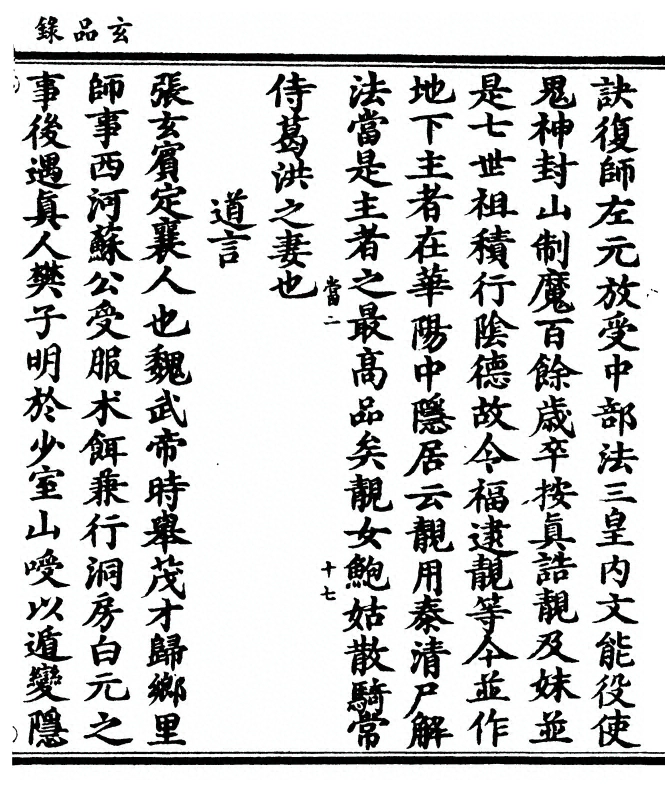 玄品錄
訣復師左元放受中部法三皇內文能役使
鬼神封山制魔百餘歲卒按真誥靚及妹並
是七世祖積行陰德故今福逮靚等今並作
地下主者在華陽中隱居云靚用秦清尸解
法當是主者之最高品矣靚女鮑姑散騎常
當二
十七
侍葛洪之妻也
道言
張玄賓定襄人也魏武帝時舉茂才歸鄉里
師事西河蘇公受服朮餌兼行洞房白元之
事後遇真人樊子明於少室山嗳以遁變隱